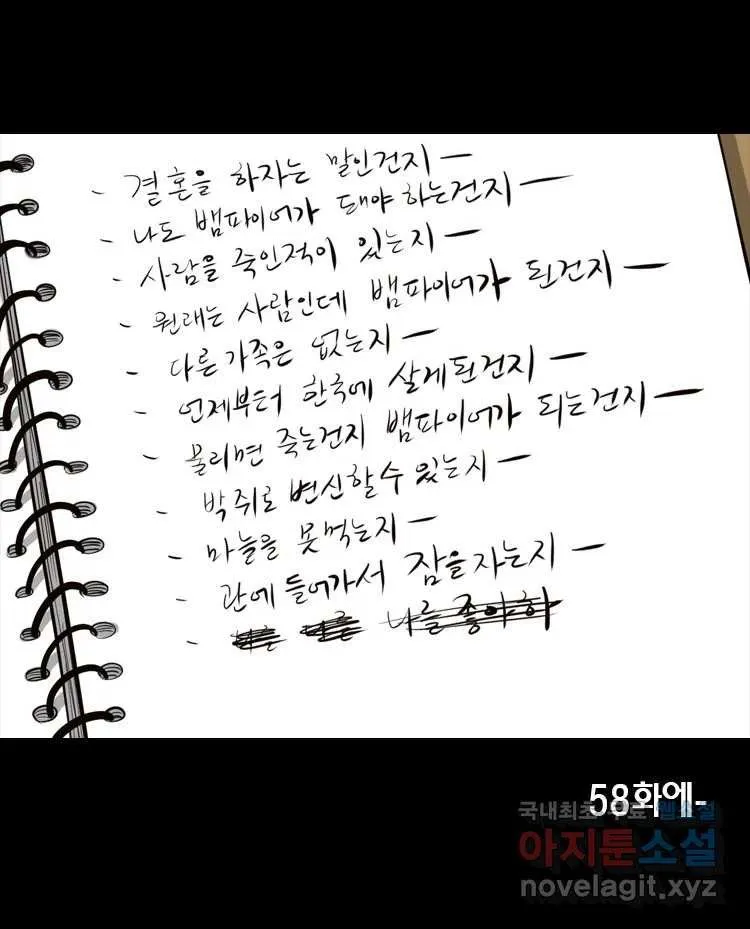 - 결혼을 하자는 말인건지 —
- 나도 뱀파이어가 돼야 하는건지 —
- 사람을 죽인적이 있는지 —
- 원래는 사람인데 뱀파이어가 된건지 —
- 다른 가족은 없는지 —
- 언제부터 한국에 살게된건지 —
- 물리면 죽는건지 뱀파이어가 되는건지 —
- 박쥐로 변신할수 있는지 —
- 마늘을 못먹는지 —
- 관에 들어가서 잠을 자는지 —
- 나를 좋아하
58화에-
국내최초 무료 웹소설
아지툰소설
novelagit.xyz